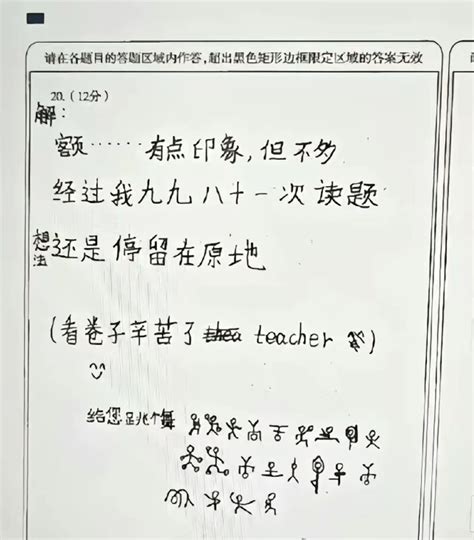 请在各题目的答题区域内作答，超出黑色矩形边框限定区域的答案无效
20.（12分）
解：
额……有点印象，但不多
经过我九九八十一次读题
想法还是停留在原地
（看卷子辛苦了 teacher）
给您跳个舞